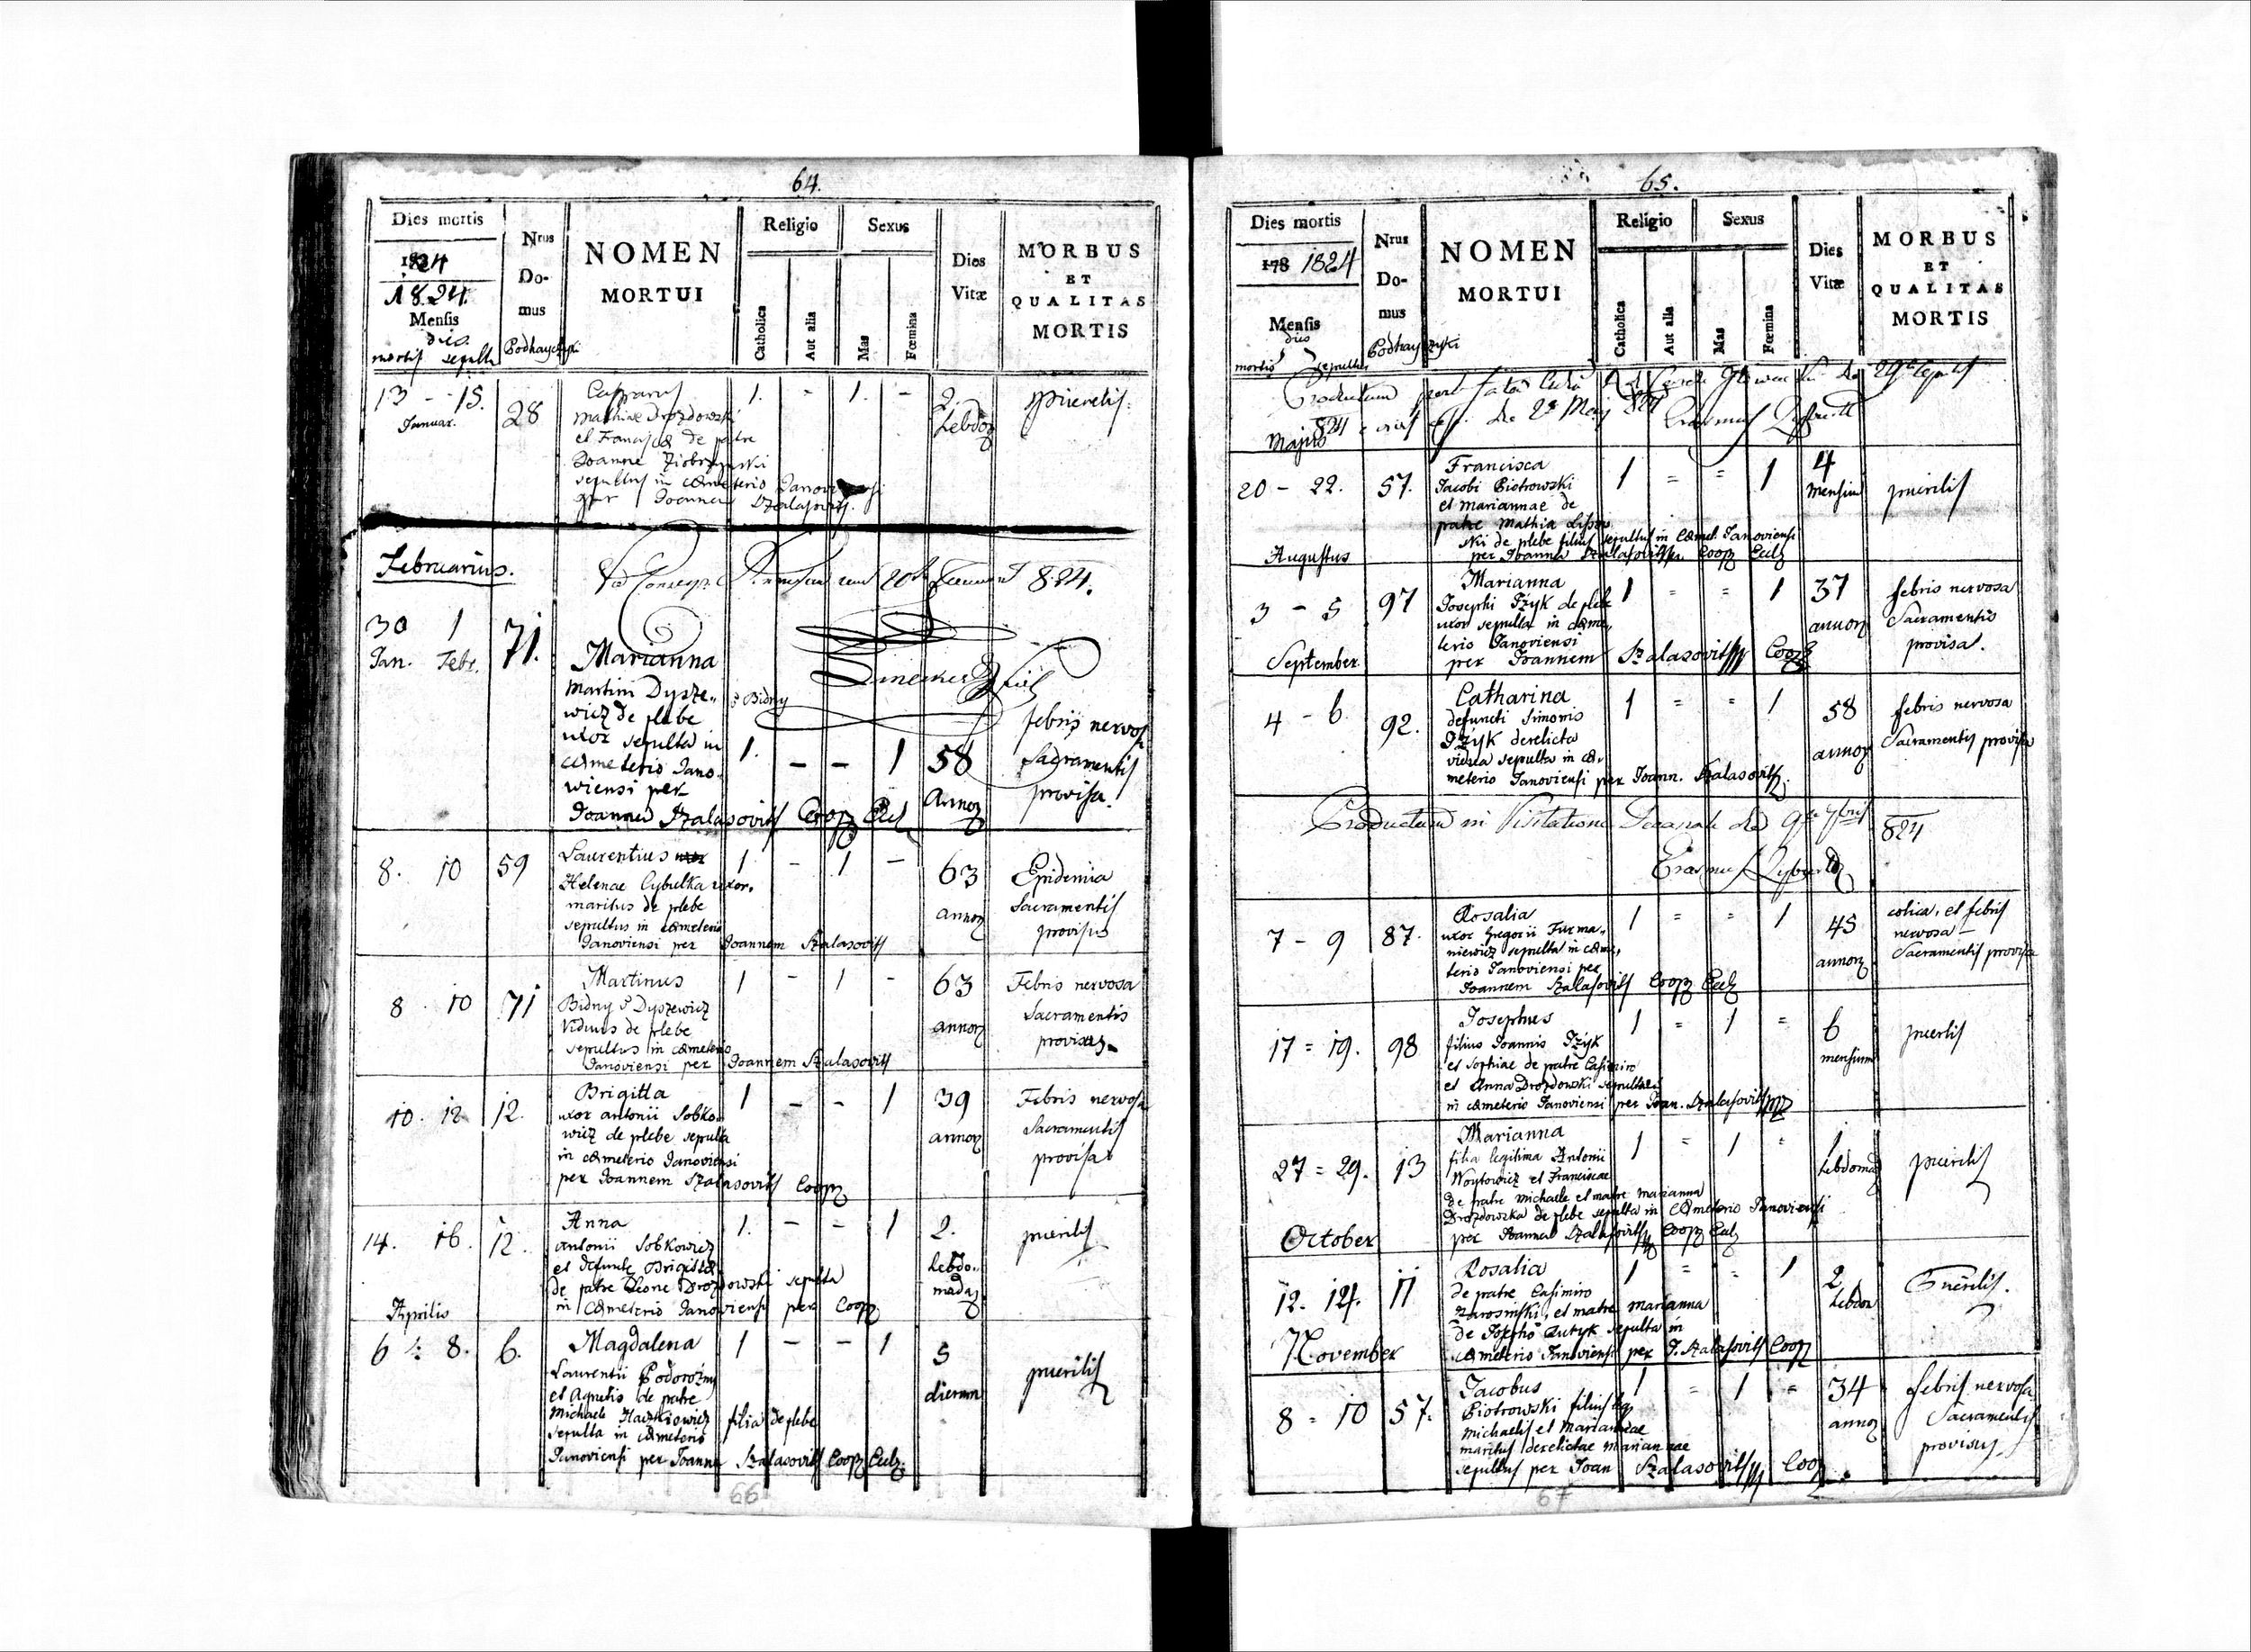 64.
Dies mortis
1824
1824.
Mensis
dies
mortis sepult
Nrus
Do-
mus
Podhayczyki
NOMEN
MORTUI
Religio
Catholica
Aut alia
Sexus
Mas
Fœmina
Dies
Vitæ
MORBUS
ET
QUALITAS
MORTIS
13 - 15.
Januar.
28
Casparus
Mathiae Drozdowski
et Franciscæ de patre
Joanne
sepultus in cœmeterio Janoviensi
per Joannem Szalasovits.
1. - 1. -
2.
Lebdoz
puerilis.
Februarius.
20 824.
30 1
Jan. Febr.
71.
Marianna
Martini Dysze„
wicz de plebe
uxor sepulta in
cœmeterio Jano„
wiensi per
Joannem Szalasovits Coop Eccl
Bidny
1. - - 1
58
Annoz
febris nervosa
Sacramentis
provisa.
8. 10
59
Laurentius
Helenae Cybulka uxor.
maritus de plebe
sepultus in cœmeterio
Janoviensi per Joannem Szalasovits
1 - 1 -
63
annoz
Epidemia
Sacramentis
provisus
8. 10
71
Martinus
Bidny Dyszewicz
Viduus de plebe
sepultus in cœmeterio
Janoviensi per Joannem Szalasovits
1 - 1 -
63
annoz
Febris nervosa
Sacramentis
provisus
10. 12
12.
Brigitta
uxor Antonii Sobko„
wicz de plebe sepulta
in cœmeterio Janoviensi
per Joannem Szalasovits Coop
1 - - 1
39
annoz
Febris nervosa
Sacramentis
provisa
14. 16.
12.
Anna
Antonii Sobkowicz
et defunctæ Brigittæ
de patre Leone Drozdowski sepulta
in Cœmeterio Janoviensi per Coop
1. - - 1
2.
hebdo„
madaz
puerilis
Aprilis
6 8.
6.
Magdalena
Laurentii Podorozny
et Agnetis de patre
Michaele Haczkiewicz filia de plebe
sepulta in cœmeterio
Janoviensi per Joannem Szalasovits Coop Eccl.
1 - - 1
5
dierum
puerilis
66
65.
Dies mortis
178 1824
Mensis
dies
mortis sepultus
Nrus
Do-
mus
Podhayczyki
NOMEN
MORTUI
Religio
Catholica
Aut alia
Sexus
Mas
Fœmina
Dies
Vitæ
MORBUS
ET
QUALITAS
MORTIS
Majus
20 - 22.
57.
Francisca
Jacobi Piotrowski
et Mariannae de
patre Mathia Lisow
ski de plebe filius sepultus in Cœmet. Janoviensi
per Joannem Szalasovits Coop Eccl
1 = = 1
4
mensium
puerilis
Augustus
3 - 5
97
Marianna
Josephi Izyk de plebe
uxor sepulta in cœme„
terio Janoviensi
per Joannem Szalasovits Coop
1 = = 1
37
annoz
febris nervosa
Sacramentis
provisa.
September
4 - 6.
92.
Catharina
defuncti Simonis
Izyk derelicta
vidua sepulta in cœ„
meterio Janoviensi per Joann. Szalasovits.
1 = = 1
58
annoz
febris nervosa
Sacramentis provisa
Productum in Visitatione Decanali die 9 7bris 824
7 - 9
87.
Rosalia
uxor Gregorii Furma„
niewicz sepulta in cœme„
terio Janoviensi per
Joannem Szalasovits Coop Eccl
1 = = 1
45
annoz
colica, et febris
nervosa
Sacramentis provisa
17 = 19.
98
Josephus
filius Joannis Izyk
et Sophiae de patre Casimiro
et Anna Drozdowski sepultus
in cœmeterio Janoviensi per Joan. Szalasovits
1 = 1 =
6
mensium
puerilis
27 = 29.
13
Marianna
filia legitima Antonii
Woytowicz et Franciscae
de patre Michaele et matre Marianna
Drozdowska de plebe sepulta in Cœmeterio Janoviensi
per Joannem Szalasovits Coop Eccl
1 = 1 =
1
hebdomad
puerilis
October
12. 14.
11
Rosalia
de patre Casimiro
et matre Marianna
de Josepho sepulta in
cœmeterio Janoviensi per J. Szalasovits Coop
1 = = 1
2
hebdom
Puerilis.
November
8 = 10
57.
Jacobus
Piotrowski filius leg
Michaelis et Mariannae
maritus derelictae Mariannae
sepultus per Joan Szalasovits Coop.
1 = 1 =
34
annoz
febris nervosa
Sacramentis
provisus
67